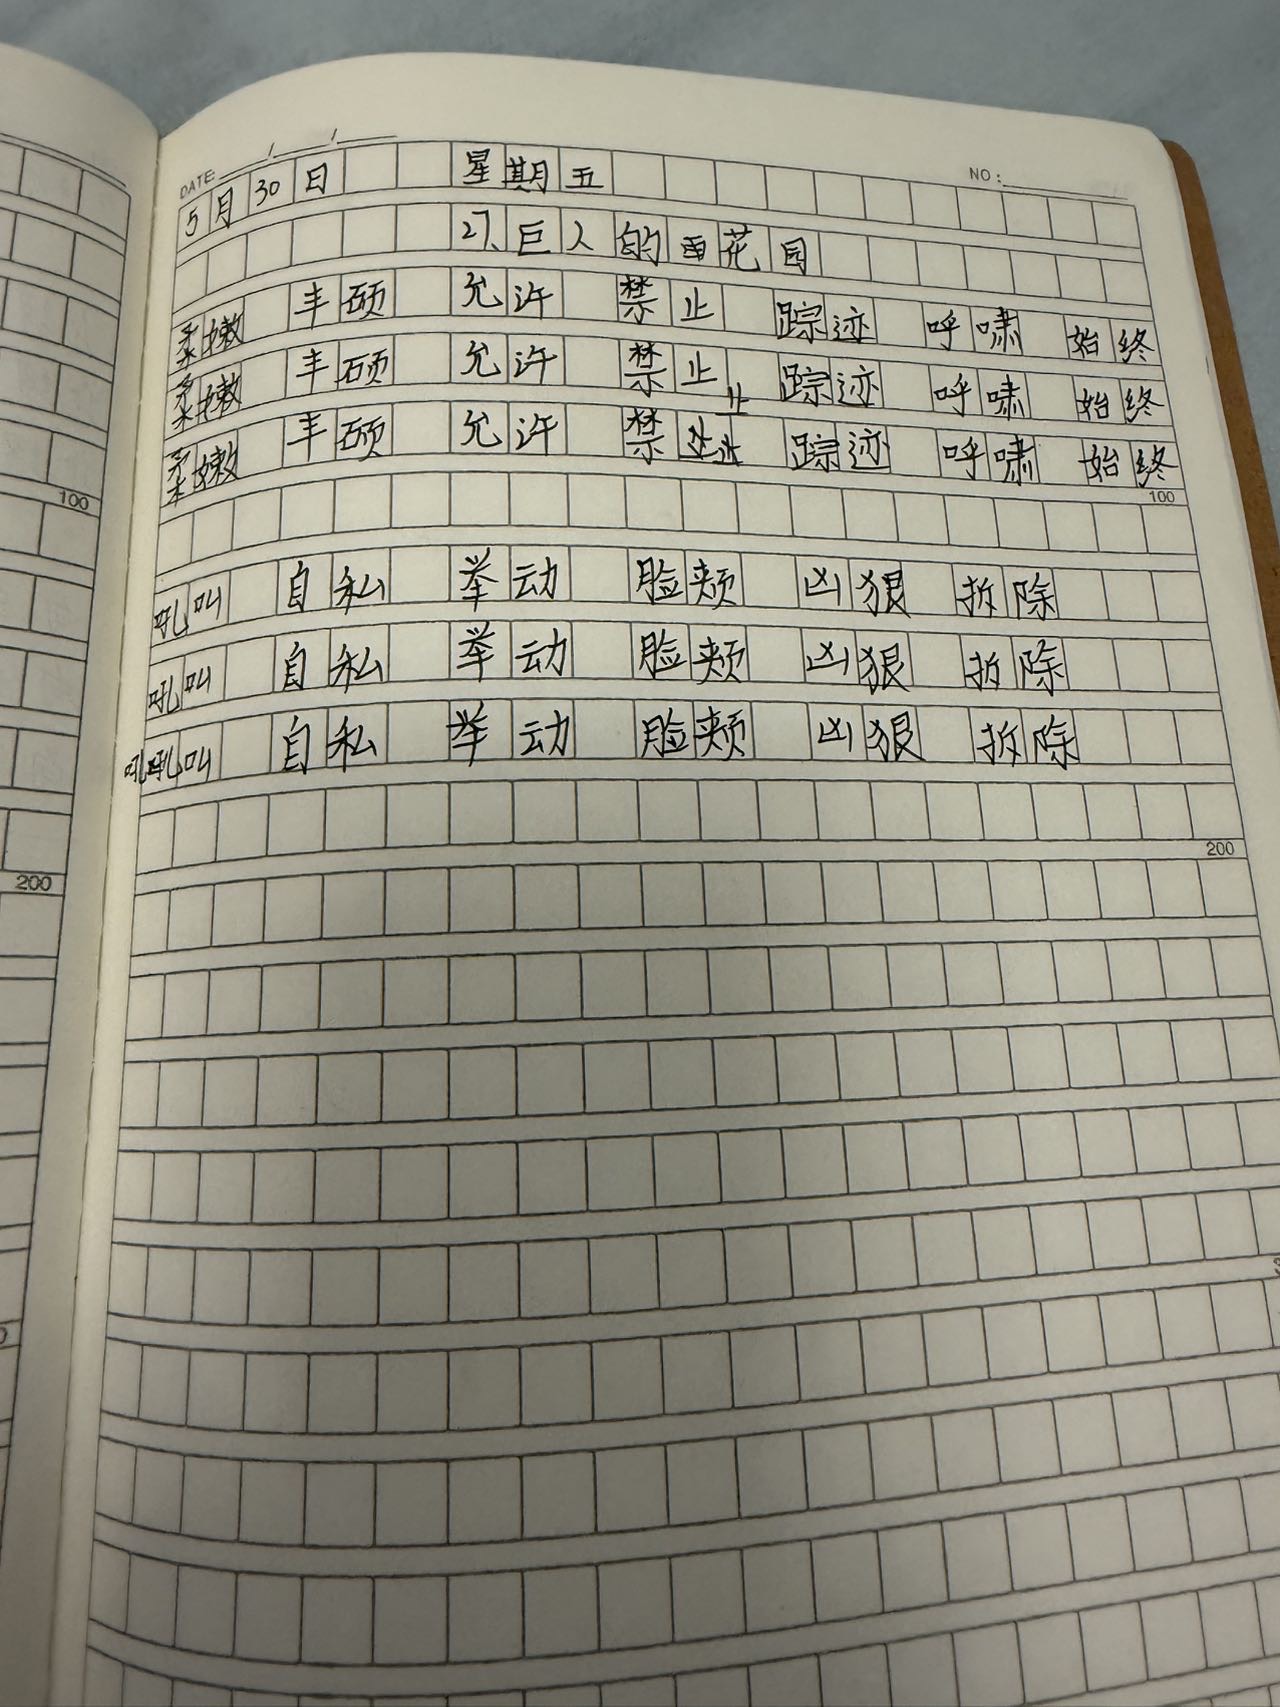 DATE: / / NO:
5月30日 星期五
27、巨人的花园
柔嫩 丰硕 允许 禁止 踪迹 呼啸 始终
柔嫩 丰硕 允许 禁止 踪迹 呼啸 始终
止
柔嫩 丰硕 允许 禁 踪迹 呼啸 始终
100 100
吼叫 自私 举动 脸颊 凶狠 拆除
吼叫 自私 举动 脸颊 凶狠 拆除
吼吼叫 自私 举动 脸颊 凶狠 拆除
200 200